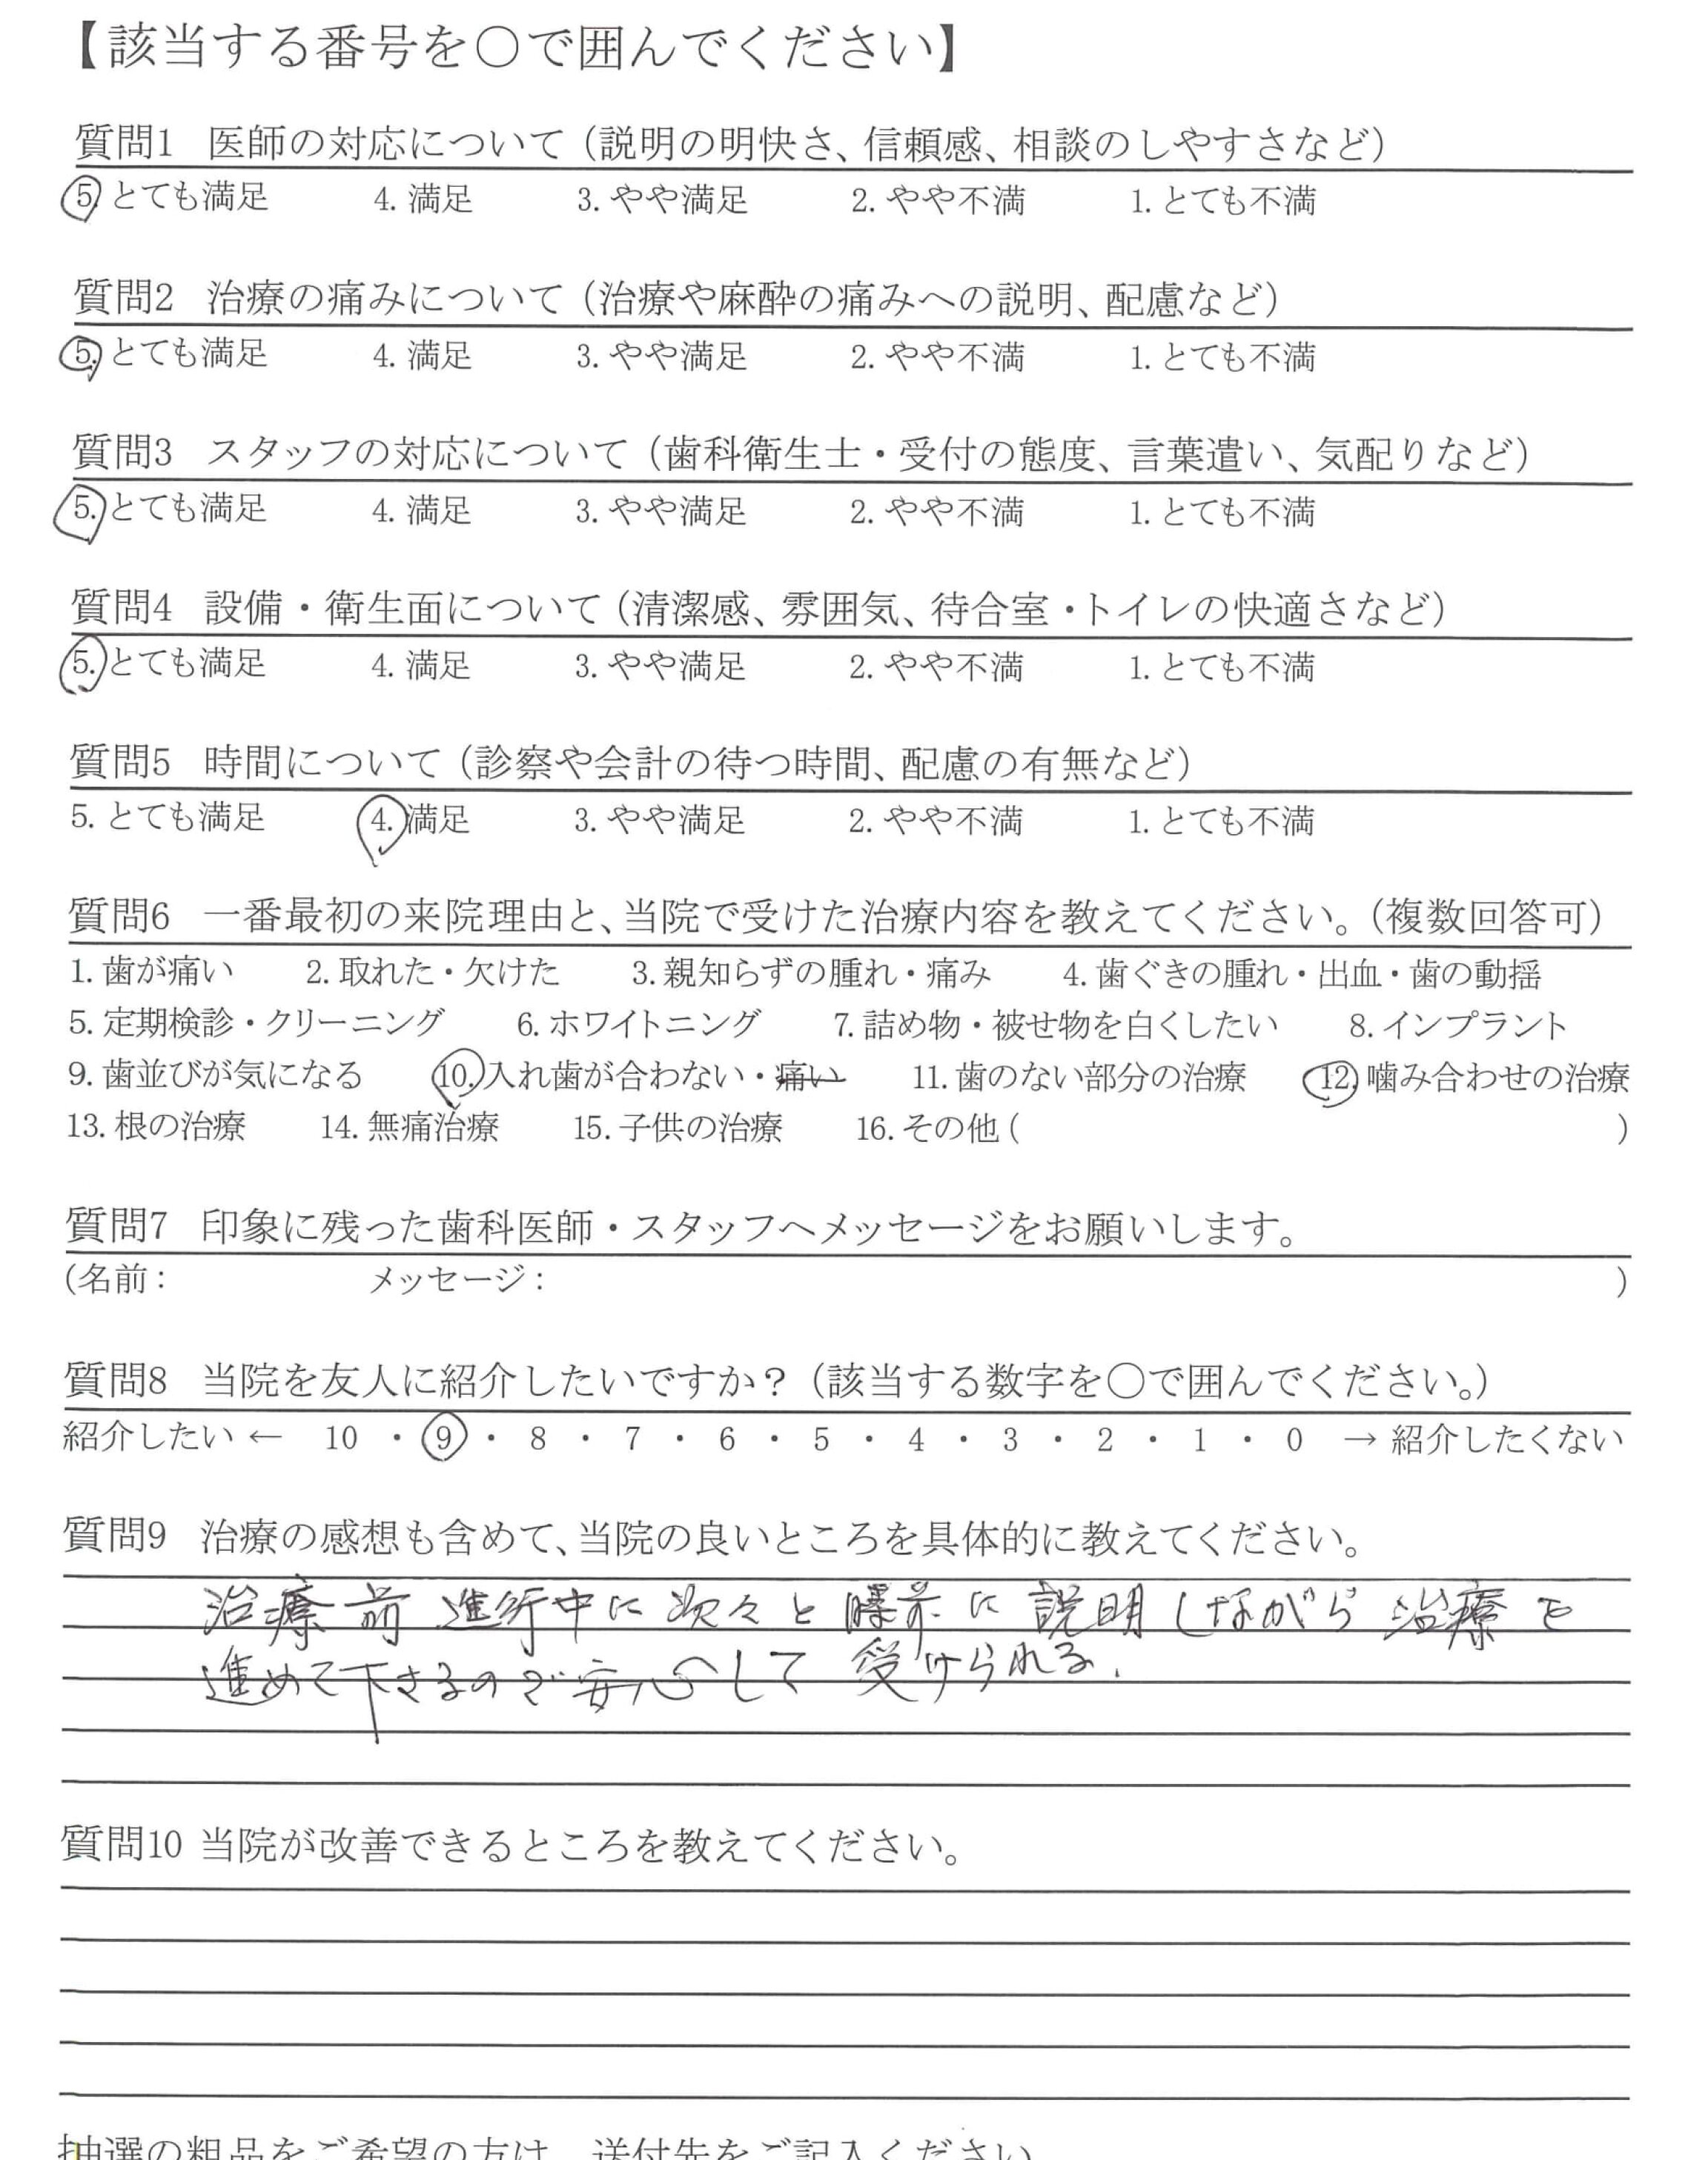 【該当する番号を○で囲んでください】
質問1 医師の対応について（説明の明快さ、信頼感、相談のしやすさなど）
5. とても満足 4. 満足 3. やや満足 2. やや不満 1. とても不満
質問2 治療の痛みについて（治療や麻酔の痛みへの説明、配慮など）
5. とても満足 4. 満足 3. やや満足 2. やや不満 1. とても不満
質問3 スタッフの対応について（歯科衛生士・受付の態度、言葉遣い、気配りなど）
5. とても満足 4. 満足 3. やや満足 2. やや不満 1. とても不満
質問4 設備・衛生面について（清潔感、雰囲気、待合室・トイレの快適さなど）
5. とても満足 4. 満足 3. やや満足 2. やや不満 1. とても不満
質問5 時間について（診察や会計の待つ時間、配慮の有無など）
5. とても満足 4. 満足 3. やや満足 2. やや不満 1. とても不満
質問6 一番最初の来院理由と、当院で受けた治療内容を教えてください。（複数回答可）
1. 歯が痛い 2. 取れた・欠けた 3. 親知らずの腫れ・痛み 4. 歯ぐきの腫れ・出血・歯の動揺
5. 定期検診・クリーニング 6. ホワイトニング 7. 詰め物・被せ物を白くしたい 8. インプラント
9. 歯並びが気になる 10. 入れ歯が合わない・痛い 11. 歯のない部分の治療 12. 噛み合わせの治療
13. 根の治療 14. 無痛治療 15. 子供の治療 16. その他 ( )
質問7 印象に残った歯科医師・スタッフへメッセージをお願いします。
(名前： メッセージ： )
質問8 当院を友人に紹介したいですか？（該当する数字を○で囲んでください。）
紹介したい ← 10 ・ 9 ・ 8 ・ 7 ・ 6 ・ 5 ・ 4 ・ 3 ・ 2 ・ 1 ・ 0 → 紹介したくない
質問9 治療の感想も含めて、当院の良いところを具体的に教えてください。
治療前 進行中に次々と に説明しながら治療を
進めて下さるので安心して受けられる.
質問10 当院が改善できるところを教えてください。
抽選の粗品をご希望の方は、送付先をご記入ください